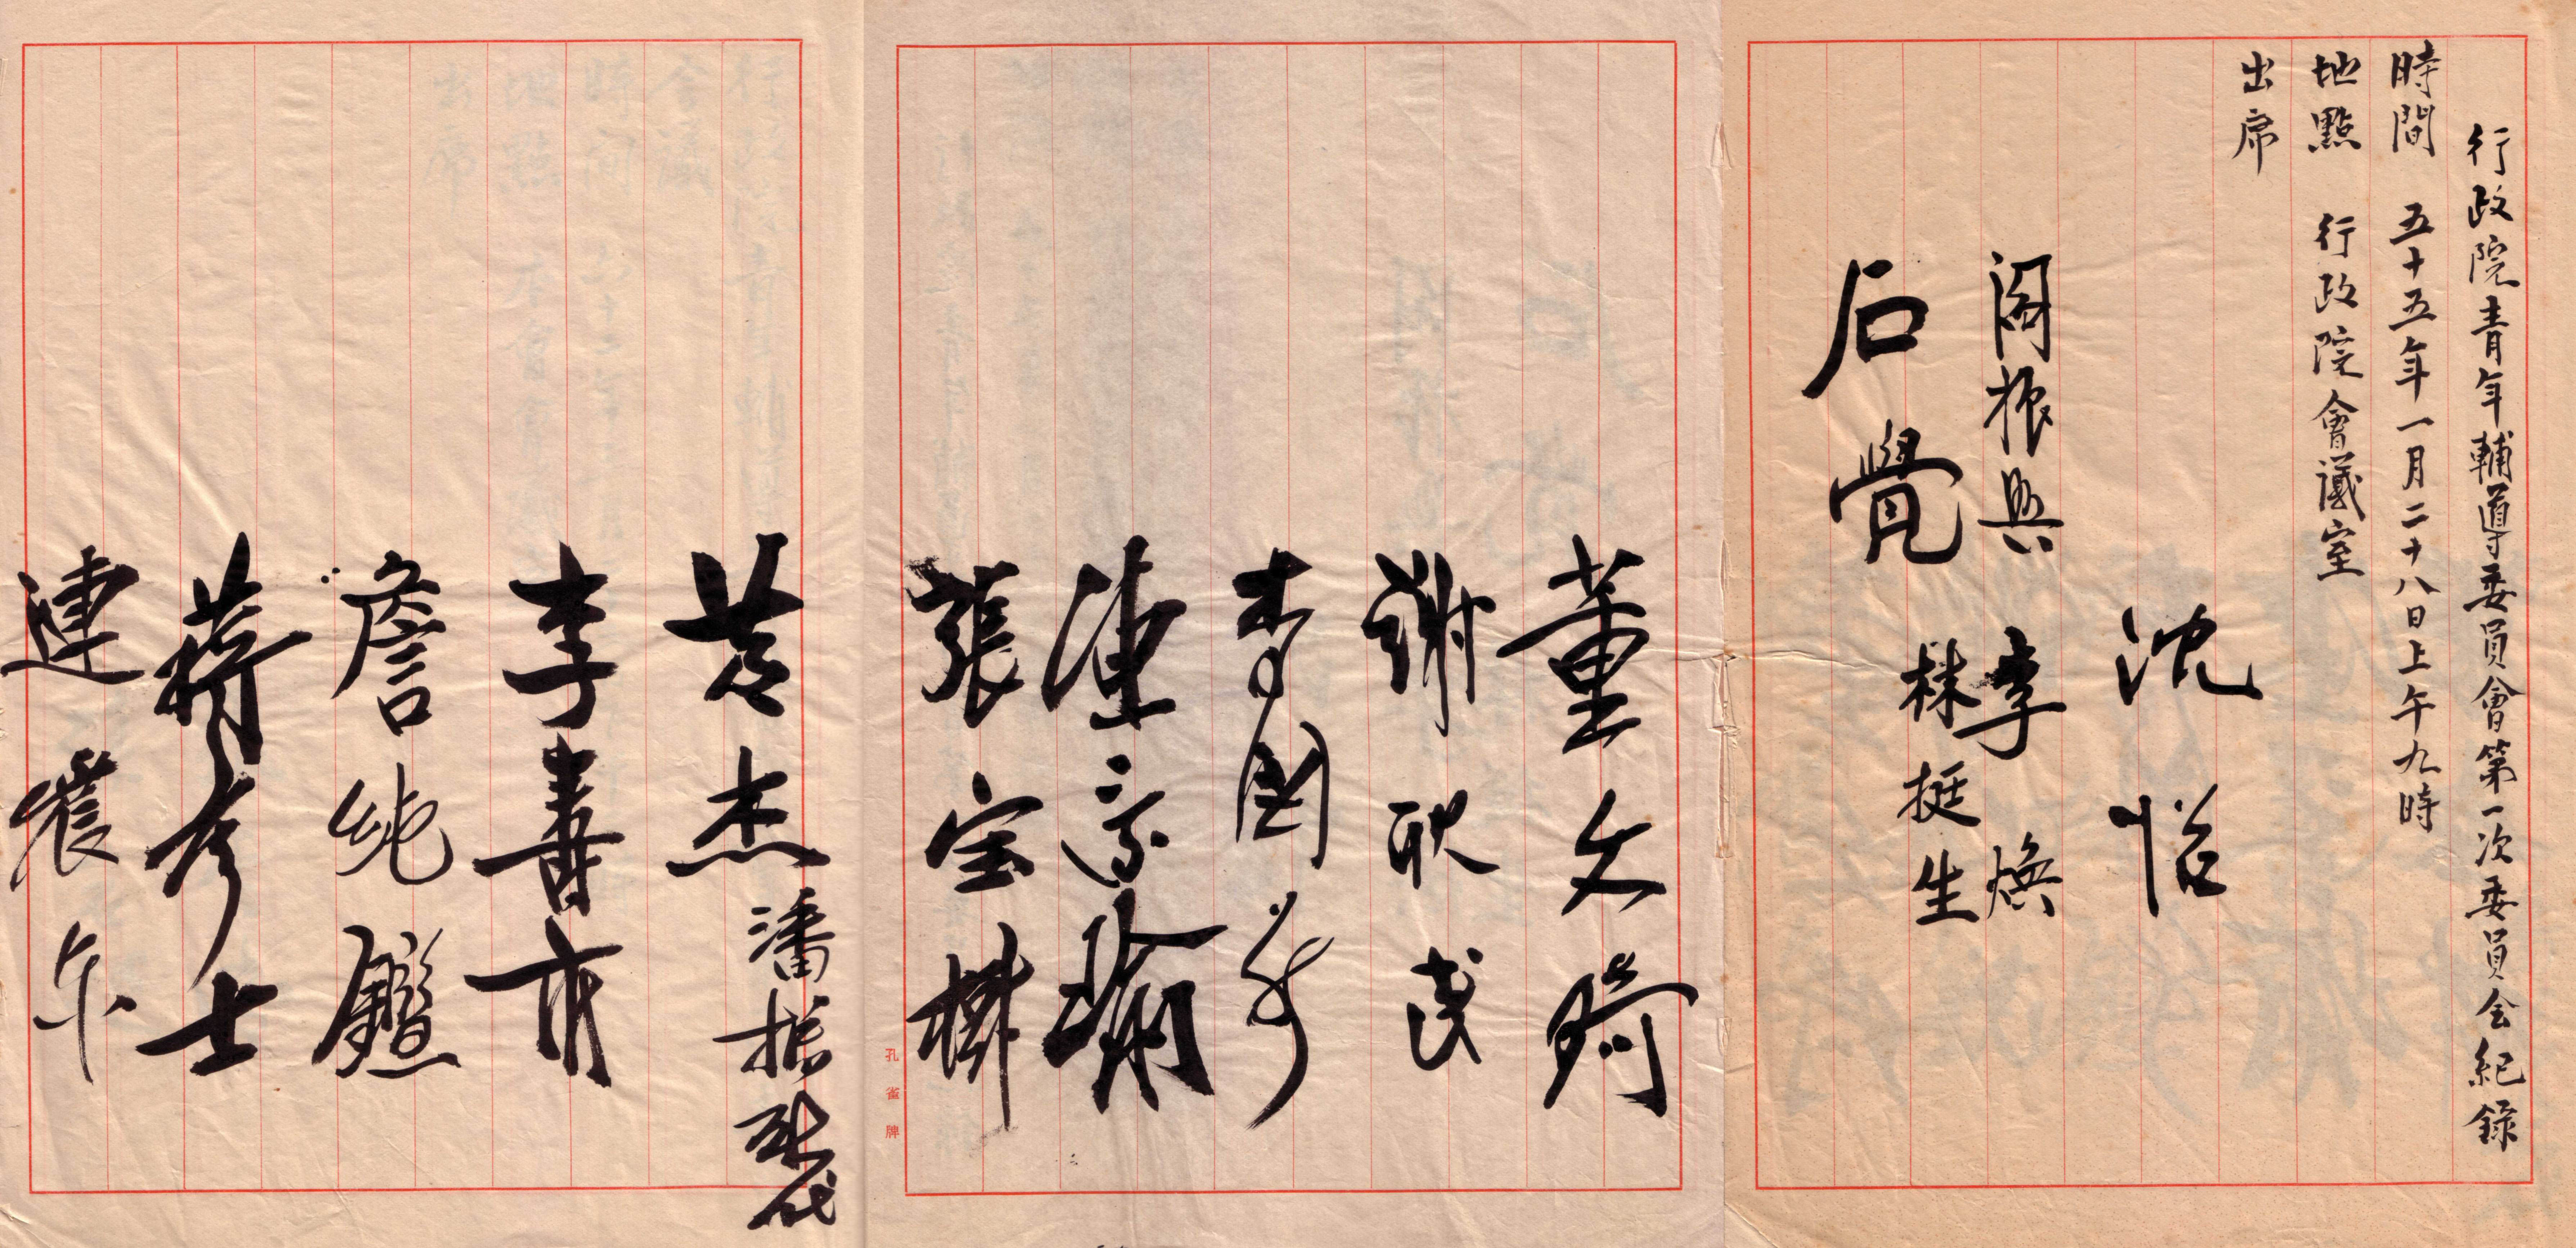 行政院青年輔導委員會第一次委員会紀錄
時間 五十五年一月二十八日上午九時
地點 行政院會議室
出席
沈怡
閻振興 李煥
石覺 林挺生
董文琦
謝耿民
李國鼎
陳宗瑜
張宝樹
孔雀牌
黃杰 潘振球代
李書
詹純鑑
蔣彥士
連震